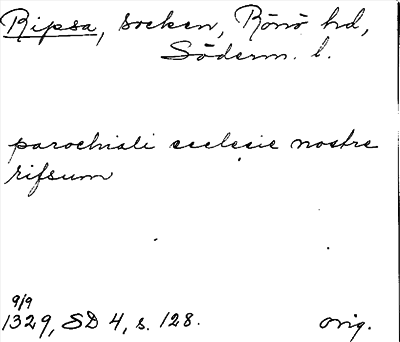 Ripsa, socken, Rönö hd,
Söderm. l.
parochiali ecclesie nostre
rifsum
9/9
1329, SD 4, s. 128.
orig.